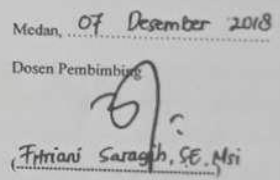 Medan, 07 Desember 2018
Dosen Pembimbing
(Fitriani Saragih, SE. Msi)